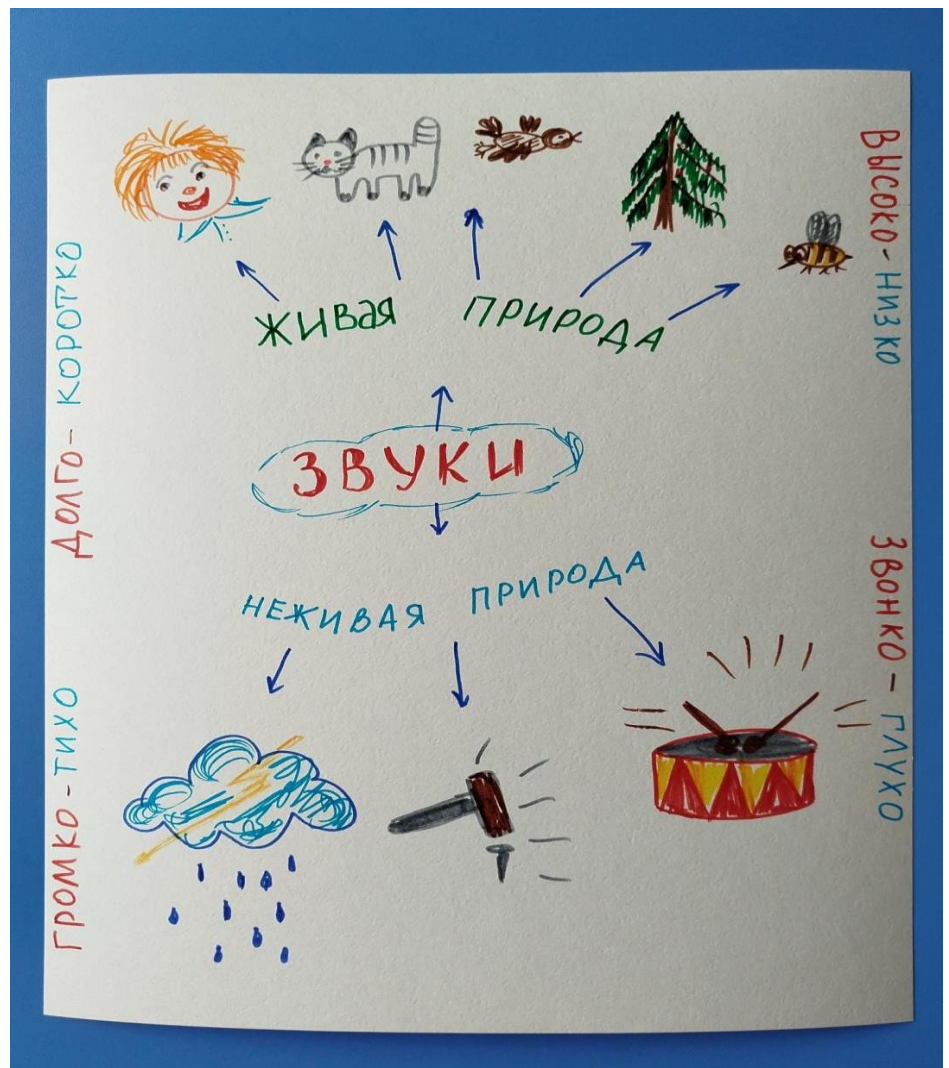 ЖИВАЯ ПРИРОДА
ЗВУКИ
НЕЖИВАЯ ПРИРОДА
ДОЛГО - КОРОТКО
ГРОМКО - ТИХО
ВЫСОКО - НИЗКО
ЗВОНКО - ГЛУХО